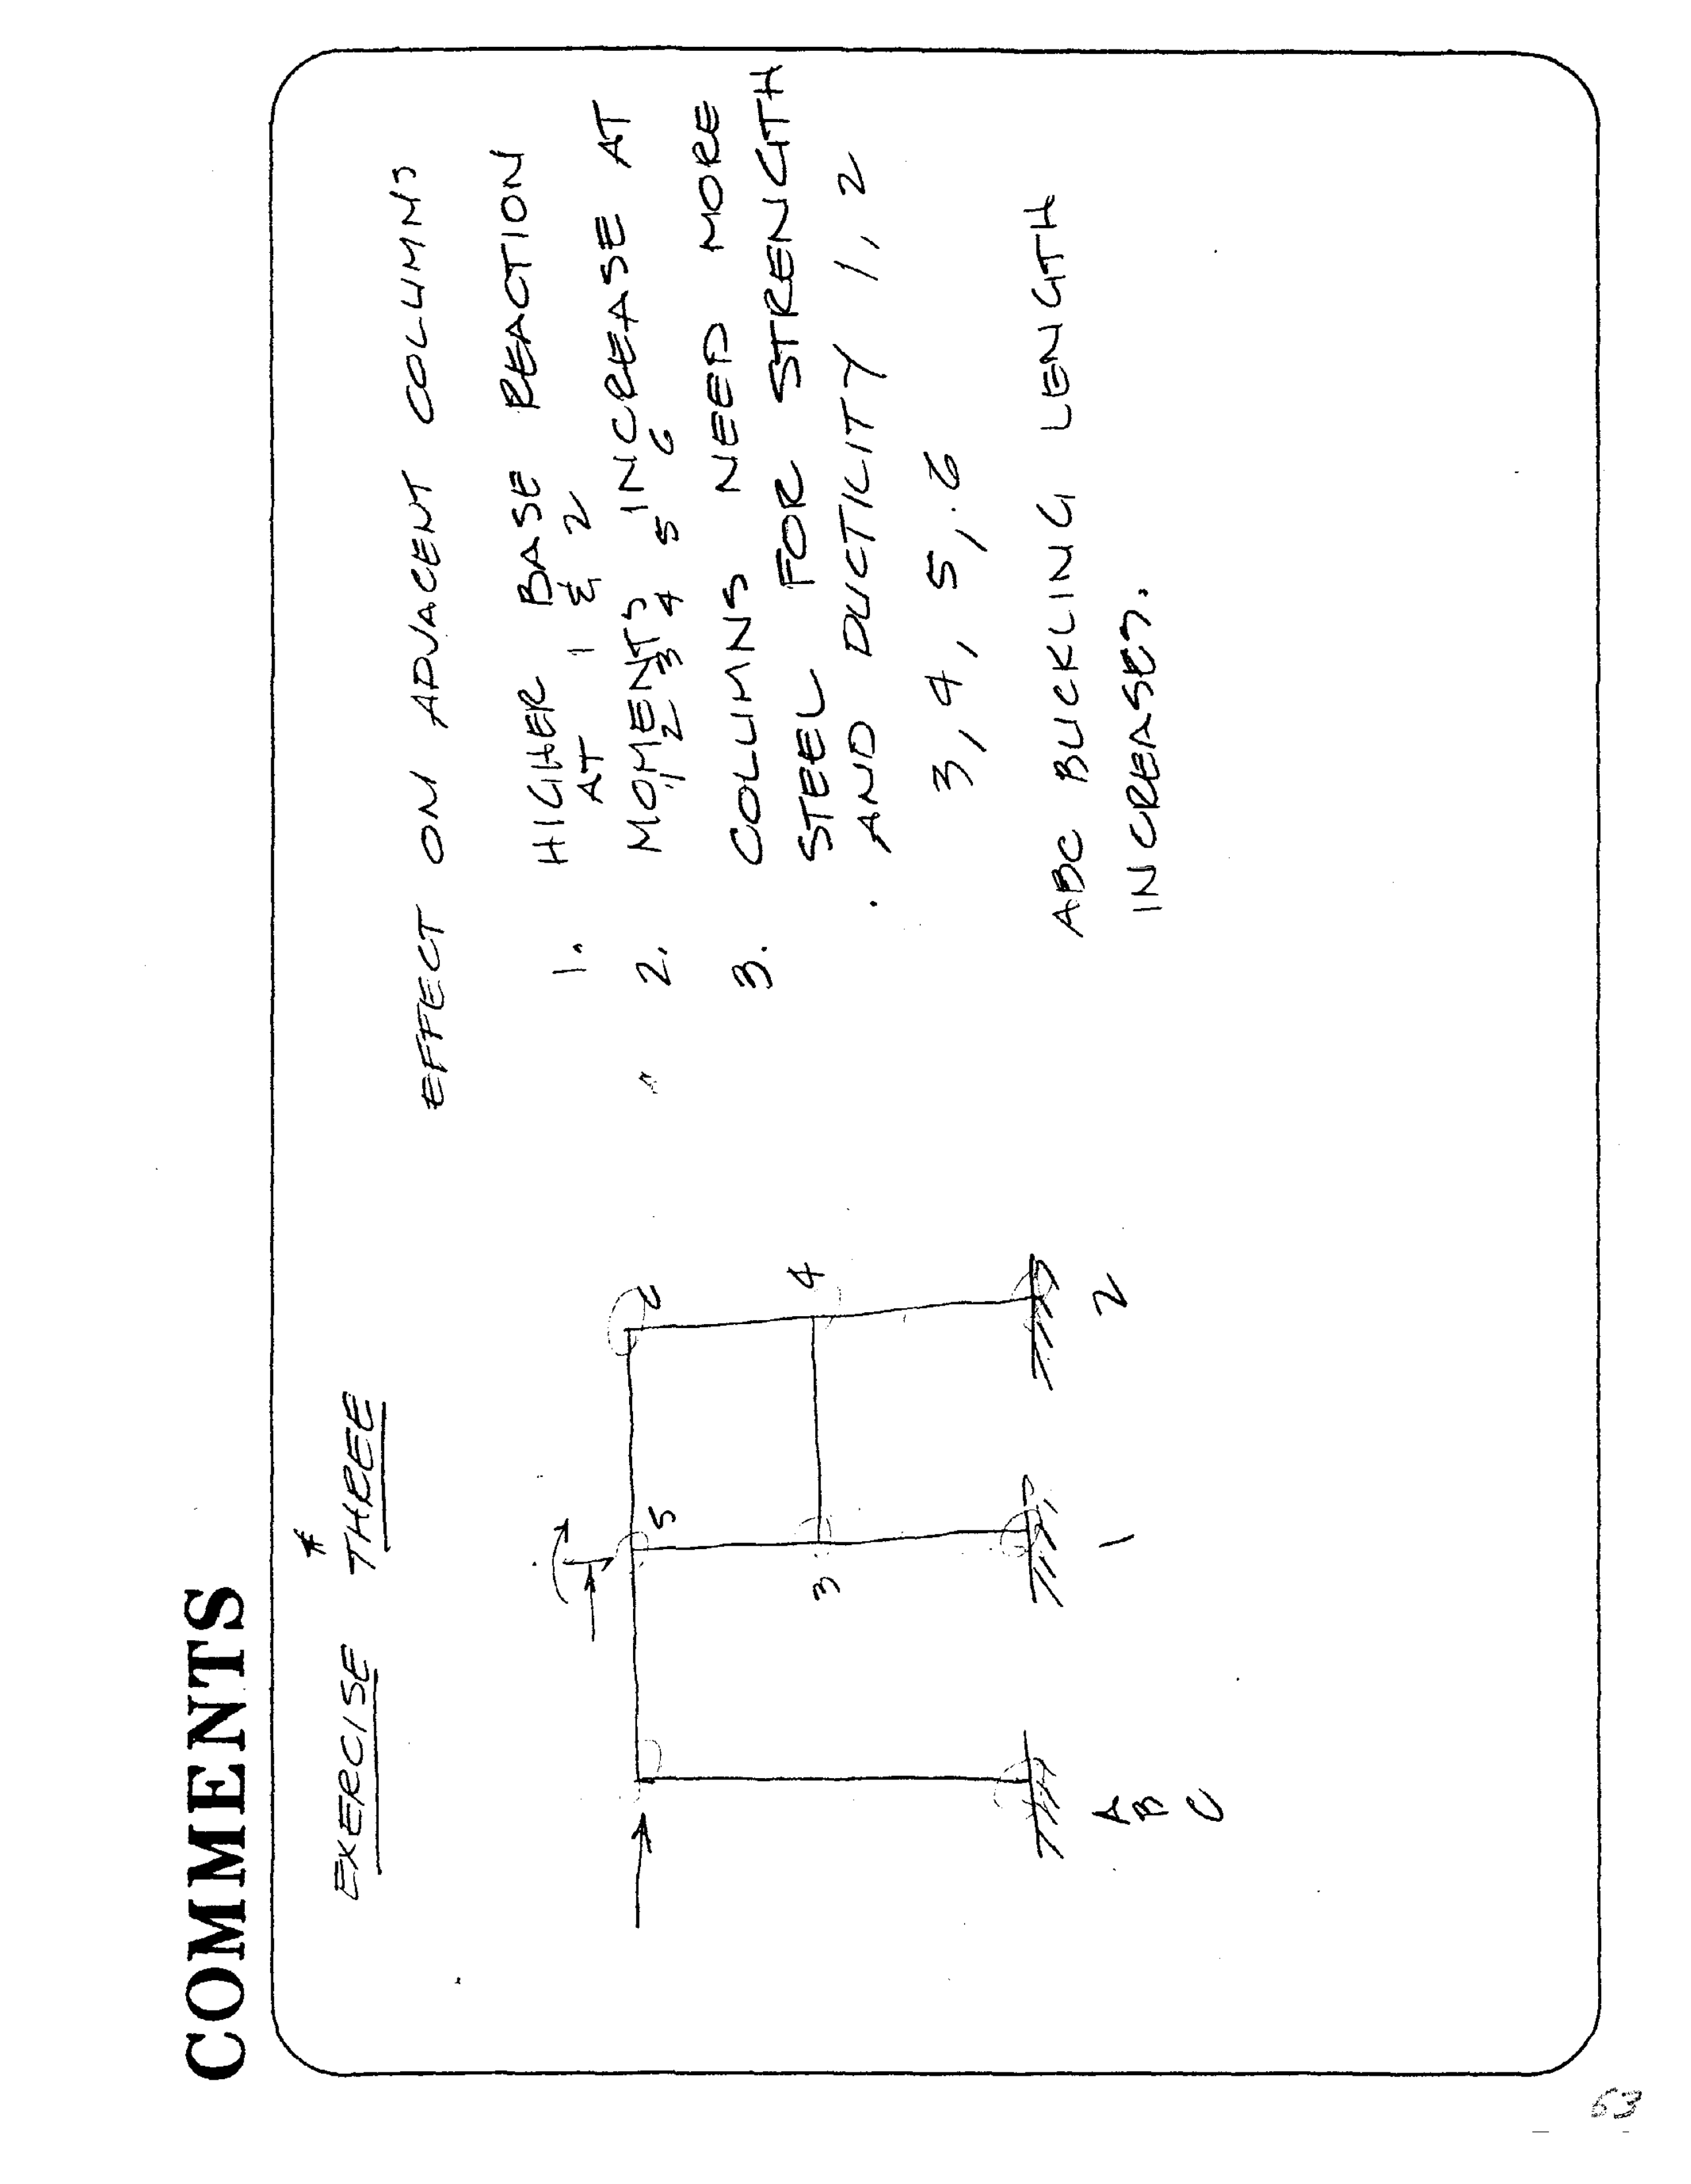 COMMENTS
#
EXERCISE THREE
5
6
3
4
A
B
C
1
2
EFFECT ON ADJACENT COLUMNS
1. HIGHER BASE REACTION
AT 1 & 2
2. MOMENTS INCREASE AT
1 2 3 4 5 6
3. COLUMNS NEED MORE
STEEL FOR STRENGTH
AND DUCTILITY 1, 2
3, 4, 5, 6
ABC BUCKLING LENGTH
INCREASES.
63